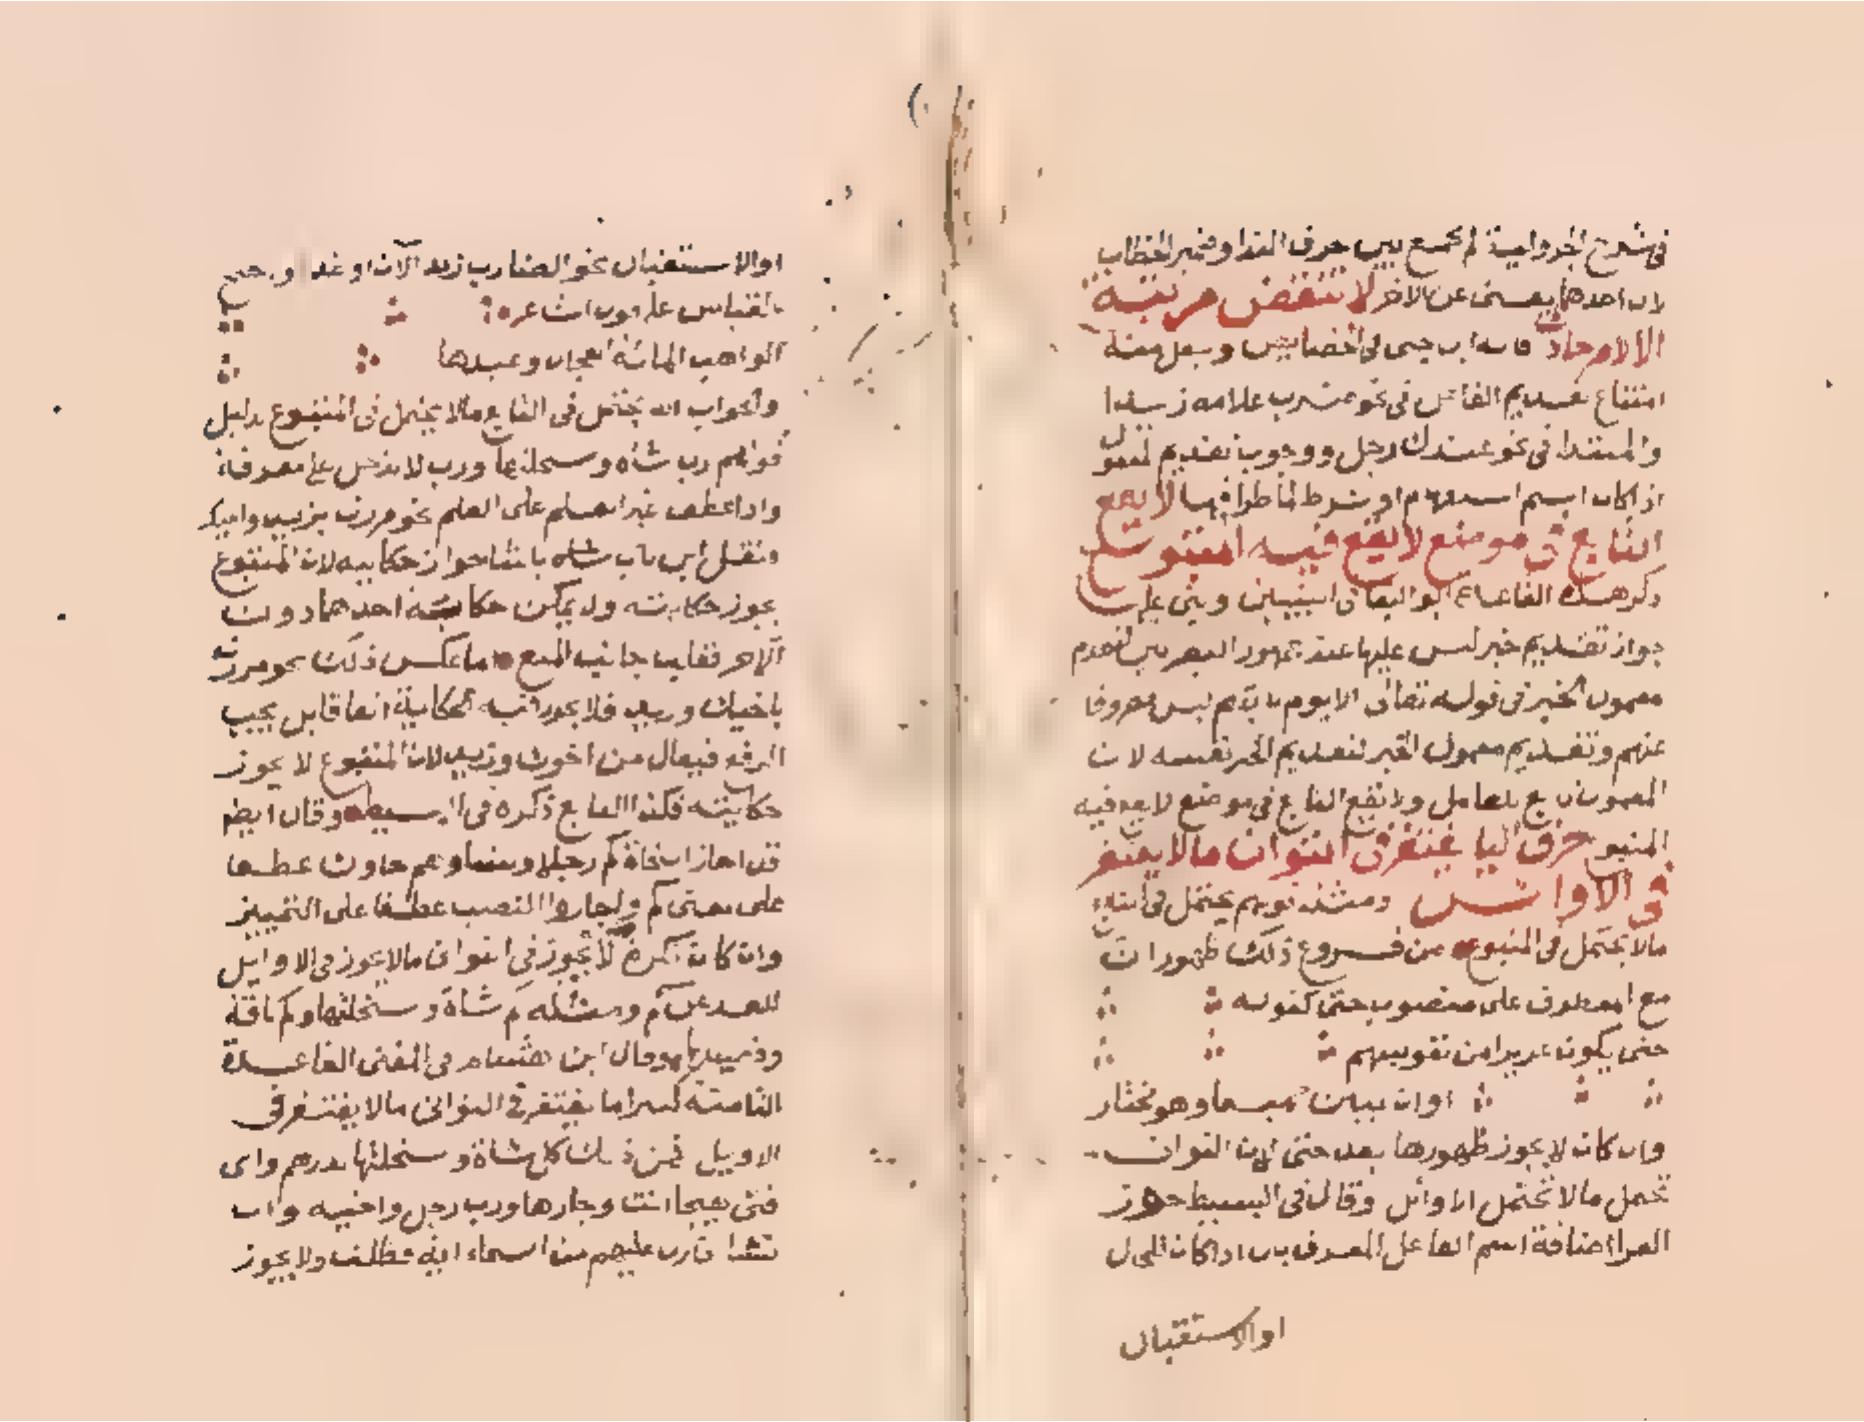 في شرح الجزولية لم يجمع بين حرف الندا وضمير الخطاب
لان احدهما يغني عن الاخر لا تنتقض مرتبة
الا لامر حادث قاله ابن جني في الخصايص وجعل منه
امتناع تقديم الفاعل في نحو ضرب غلامه زيدا
والمبتدا في نحو عندك رجل ووجوب تقديم المفعول
اذا كان اسم استفهام او شرط لما طرا فيها لا يقع
التابع في موضع لا يقع فيه المتبوع
ذكر هذه القاعدة ابو البقا في التبيين وبنى على
جواز تقديم خبر ليس عليها عند جمهور البصريين لتقدم
معمول الخبر في قوله تعالى الا يوم ياتيهم ليس مصروفا
عنهم وتقديم معمول الخبر لتقديم الخبر نفسه لان
المعمول تابع للعامل ولا يقع التابع في موضع لا يقع فيه
المتبوع حرف اليا يغتفر في الثوان ما لا يغتفر
في الاوايل ومثله قولهم يحتمل في التابع
ما لا يحتمل في المتبوع من فروع ذلك ظهور ان
مع المعطوف على منصوب حتى كقوله
حتى يكون عزيزا من نفوسهم
او ان يبين جميعا وهو مختار
وان كان لا يجوز ظهورها بعد حتى لان الثوان
تحمل ما لا تحتمل الاوائل وقال في البسيط جوز
الفرا اضافة اسم الفاعل المعرف بال اذا كان للحال
او الاستقبال
او الاستقبال نحو الضارب زيد الآن او غدا واحتج
بالقياس على قول الشاعر
الواهب المائة الهجان وعبدها
والجواب انه يحتمل في التابع ما لا يحتمل في المتبوع بدليل
قولهم رب شاة وسخلتها ورب لا تدخل على معرفة
واذا عطف غير العلم على العلم نحو مررت بزيد واخيك
ونقل ابن باب شاه بانشا جواز حكايته لان المتبوع
يجوز حكايته ولا يمكن حكاية احدهما دون
الاخر فغلب جانب المتبوع اما عكس ذلك نحو مررت
باخيك وزيد فلا يجوز فيه الحكاية اتفاقا بل يجب
الرفع فيقال من اخوك وزيد لان المتبوع لا يجوز
حكايته فكذا التابع ذكره في البسيط وقال ايضا
قد اجاز النحاة كم رجلا ونساء وهم جاوك عطفا
على معنى كم واجازوا النصب عطفا على التمييز
وان كان نكرة لانه يجوز في الثوان ما لا يجوز في الاوايل
للبعد عن كم ومثله كم شاة وسخلتها وكم ناقة
وفصيلها وقال ابن هشام في المغني القاعدة
الثامنة كثيرا ما يغتفر في الثواني ما لا يغتفر في
الاوايل فمن ذلك كل شاة وسخلتها بدرهم واي
فتى هيجا انت وجارها ورب رجل واخيه وان
نشا ننزل عليهم من السماء اية فظلت ولا يجوز